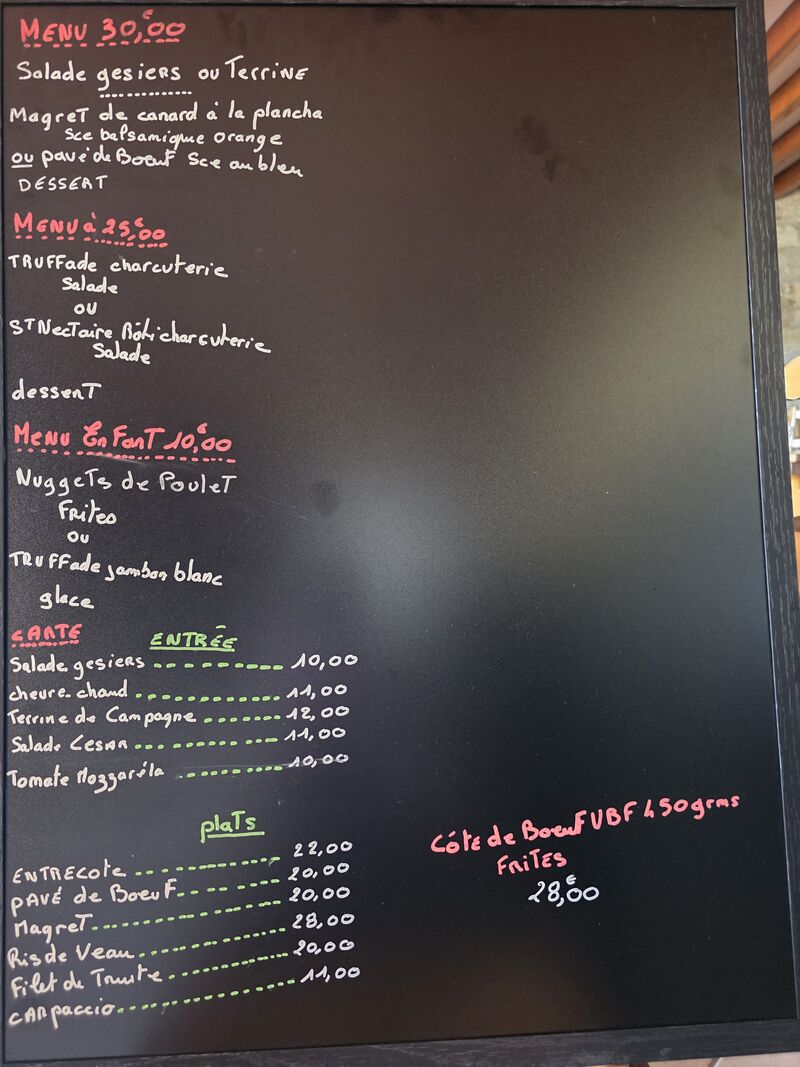 MENU 30,€00
Salade gesiers ou Terrine
Magret de canard à la plancha
Sce balsamique orange
ou pavé de Boeuf Sce au bleu
DESSERT
MENU à 25,€00
TRUFFade charcuterie
Salade
ou
ST Nectaire Rôti charcuterie
Salade
dessert
MENU EnFanT 10,€00
Nuggets de Poulet
Frites
ou
TRUFFade jambon blanc
glace
CARTE ENTRÉE
Salade gesiers 10,00
chevre chaud 11,00
Terrine de Campagne 12,00
Salade Cesar 11,00
Tomate Mozzaréla 10,00
plaTs
ENTRECOTE 22,00
PAVÉ de BoeuF 20,00
MagreT 20,00
Ris de Veau 28,00
Filet de Truite 20,00
CARpaccio 11,00
Côte de BoeuF VBF 450grms
FRITES
28,€00